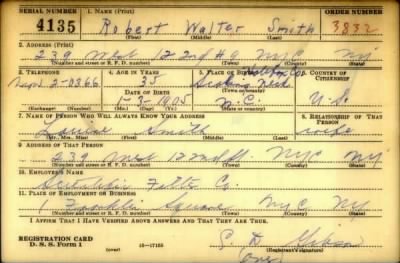 SERIAL NUMBER 1. NAME (Print) ORDER NUMBER
4135 Robert Walter Smith 3832
(First) (Middle) (Last)
2. ADDRESS (Print)
239 West 122nd #9 NYC NY
(Number and street or R. F. D. number) (Town) (County) (State)
3. TELEPHONE 4. AGE IN YEARS 5. PLACE OF BIRTH 6. COUNTRY OF CITIZENSHIP
2-0366 35
DATE OF BIRTH (Town or county)
1905 N.C. U.S.
(Exchange) (Number) (Mo.) (Day) (Yr.) (State or country)
7. NAME OF PERSON WHO WILL ALWAYS KNOW YOUR ADDRESS 8. RELATIONSHIP OF THAT PERSON
Louise Smith wife
(Mr., Mrs., Miss) (First) (Middle) (Last)
9. ADDRESS OF THAT PERSON
239 West 122nd NYC NY
(Number and street or R. F. D. number) (Town) (County) (State)
10. EMPLOYER'S NAME
Co.
11. PLACE OF EMPLOYMENT OR BUSINESS
1 Franklin Square NYC NY
(Number and street or R. F. D. number) (Town) (County) (State)
I AFFIRM THAT I HAVE VERIFIED ABOVE ANSWERS AND THAT THEY ARE TRUE.
REGISTRATION CARD
D. S. S. Form 1 (over) 16—17105 (Registrant's signature)